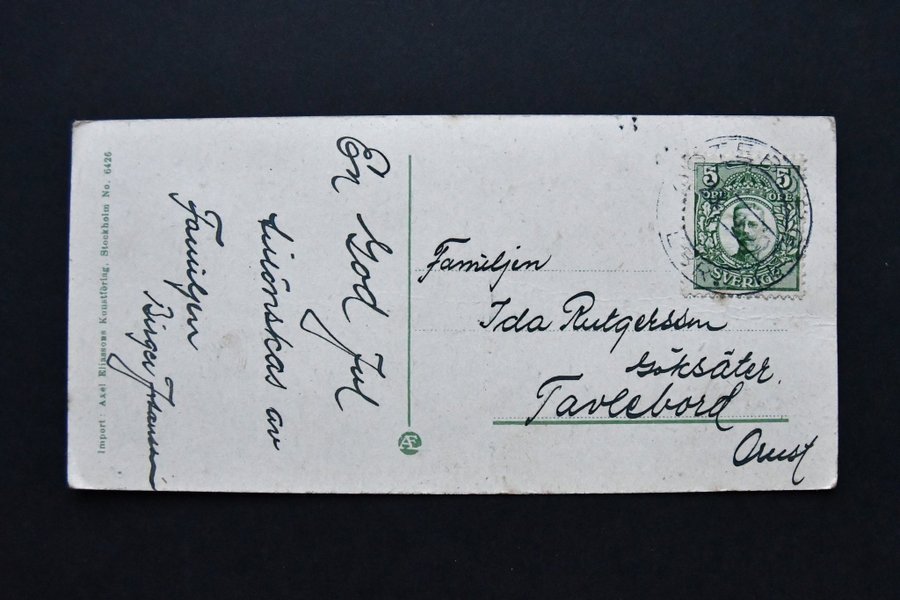 Import: Axel Eliassons Konstförlag, Stockholm No. 6426
En God Jul
tillönskas av
Familjen
Birger
Familjen
Ida Rutgersson
Göksäter
Tavlebord
Orust
5 5
ÖRE ÖRE
SVERIGE